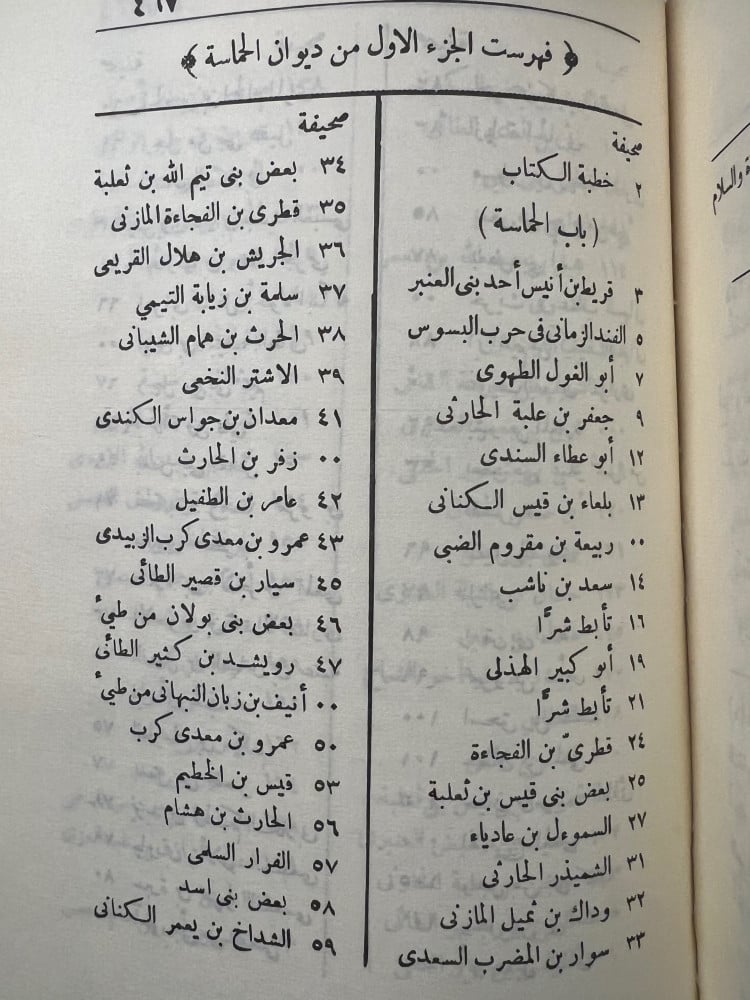 ٤٦٧
﴿ فهرست الجزء الاول من ديوان الحماسة ﴾
صحيفة
٢ خطبة الكتاب
(باب الحماسة)
٣ قريط بن أنيس أحد بنى العنبر
٥ الفند الزمانى فى حرب البسوس
٧ أبو الغول الطهوى
٩ جعفر بن علبة الحارثى
١٢ أبو عطاء السندى
١٣ بلعاء بن قيس الكنانى
٠٠ ربيعة بن مقروم الضبى
١٤ سعد بن ناشب
١٦ تأبط شرًّا
١٩ أبو كبير الهذلى
٢١ تأبط شرًّا
٢٤ قطرىّ بن الفجاءة
٢٥ بعض بنى قيس بن ثعلبة
٢٧ السموءل بن عادياء
٣١ الشميذر الحارثى
٣٢ وداك بن ثميل المازنى
٣٣ سوار بن المضرب السعدى
صحيفة
٣٤ بعض بنى تيم الله بن ثعلبة
٣٥ قطرى بن الفجاءة المازنى
٣٦ الجريش بن هلال القريعى
٣٧ سلمة بن زيابة التيمي
٣٨ الحرث بن همام الشيبانى
٣٩ الاشتر النخعى
٤١ معدان بن جواس الكندى
٠٠ زفر بن الحارث
٤٢ عامر بن الطفيل
٤٣ عمرو بن معدى كرب الزبيدى
٤٥ سيار بن قصير الطائى
٤٦ بعض بنى بولان من طيئ
٤٧ رويشد بن كثير الطائى
٠٠ أنيف بن زبان النبهانى من طيئ
٥٠ عمرو بن معدى كرب
٥٣ قيس بن الخطيم
٥٦ الحارث بن هشام
٥٧ الفرار السلمى
٥٨ بعض بنى اسد
٥٩ الشداخ بن يعمر الكنانى
والسلام